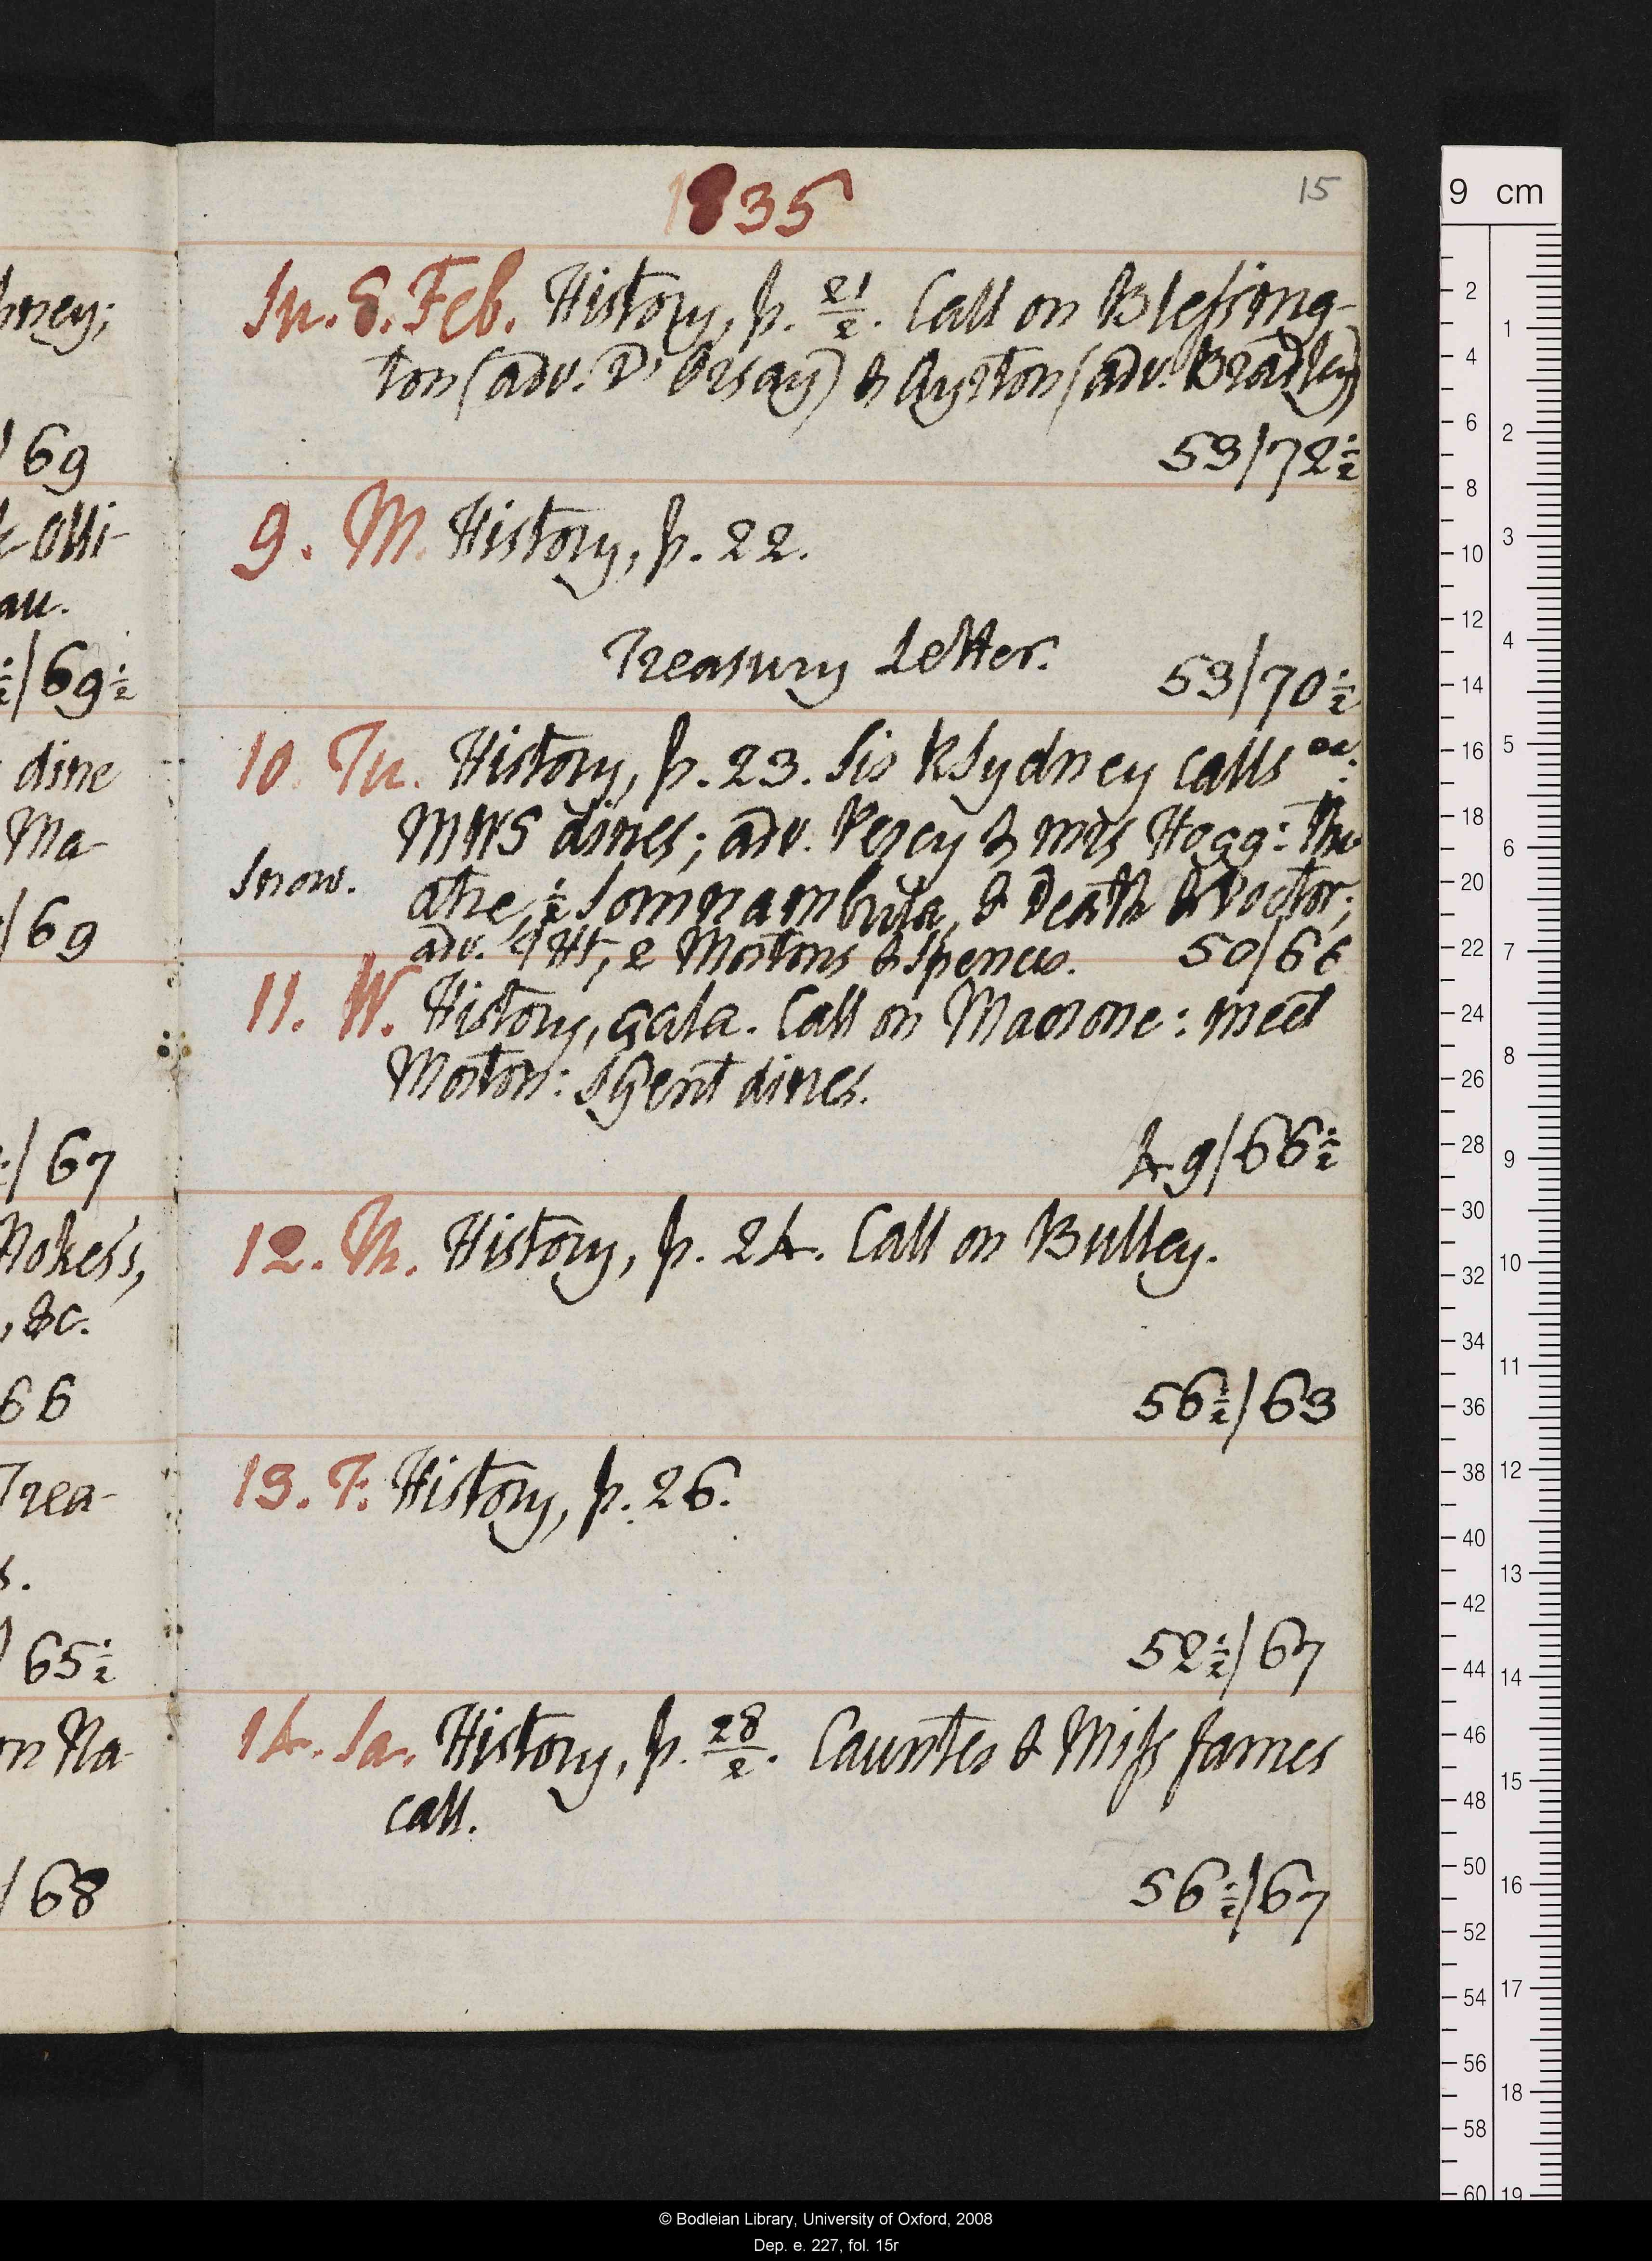 1835
15
Su. 8. Feb. History, p. 21/2. Call on Blessing-
ton (adv. D'Orsay) & Ayrton (adv. Bradley)
53/72½
9. M. History, p. 22.
Treasury Letter.
53/70½
10. Tu. History, p. 23. Sir R Sydney calls
MWS dines; adv. Percy & mrs Hogg: The-
Snow.
atre, ½ Somnambula, & Death & Doctor;
adv. 2 Mortons & Spence.
50/66
11. W. History, gala. Call on Macrone: meet
Morton: SGent dines.
49/66½
12. Th. History, p. 24. Call on Bulley.
56½/63
13. F. History, p. 26.
52½/67
14. Sa. History, p. 28/2. Caunter & Miss James
call.
56½/67
bney;
69
Olli-
au.
½/69½
dine
Ma-
/69
/67
Nokes's,
, &c.
66
Trea-
s.
65½
on Na-
/68
9 cm
2
4
6
8
10
12
14
16
18
20
22
24
26
28
30
32
34
36
38
40
42
44
46
48
50
52
54
56
58
60
1
2
3
4
5
6
7
8
9
10
11
12
13
14
15
16
17
18
19
© Bodleian Library, University of Oxford, 2008
Dep. e. 227, fol. 15r